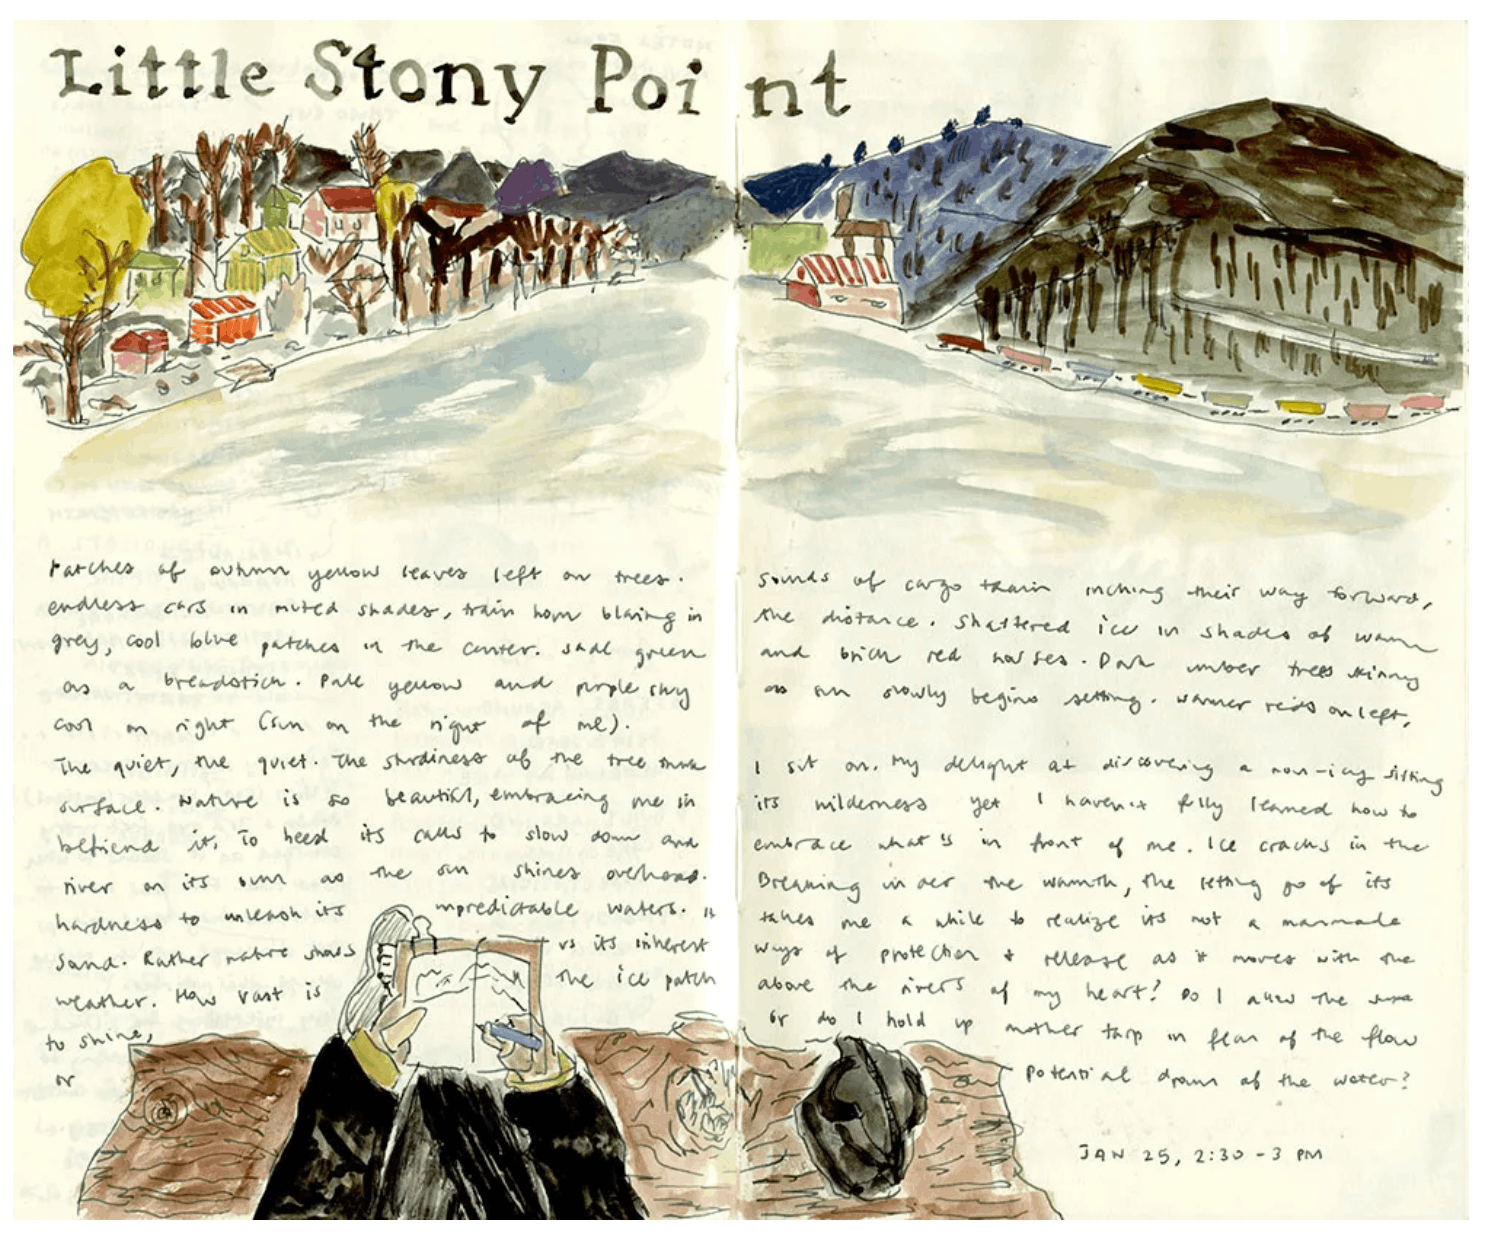 Little Stony Point
Patches of autumn yellow leaves left on trees. Sounds of cargo train inching their way forward,
endless cars in muted shades, train horn blaring in the distance. Shattered ice in shades of warm
grey, cool blue patches in the center. Sage green and brick red houses. Dark umber trees skinny
as a breadstick. Pale yellow and purple sky as sun slowly begins setting. warmer reds on left,
cool on right (sun on the right of me).
The quiet, the quiet. The sturdiness of the tree trunk I sit on. My delight at discovering a non-icy sitting
surface. Nature is so beautiful, embracing me in its wilderness yet I haven't fully learned how to
befriend it, To heed its calls to slow down and embrace what's in front of me. Ice cracks in the
river on its own as the sun shines overhead. Breaking in the warmth, the letting go of its
hardness to unleash its unpredictable waters. It takes me a while to realize its not a manmade
sound. Rather nature shows us its inherent ways of protection + release as it moves with the
weather. How vast is the ice patch above the rivers of my heart? Do I allow the
to shine, or do I hold up another tarp in fear of the flow
or potential drown of the water?
JAN 25, 2:30 - 3 PM